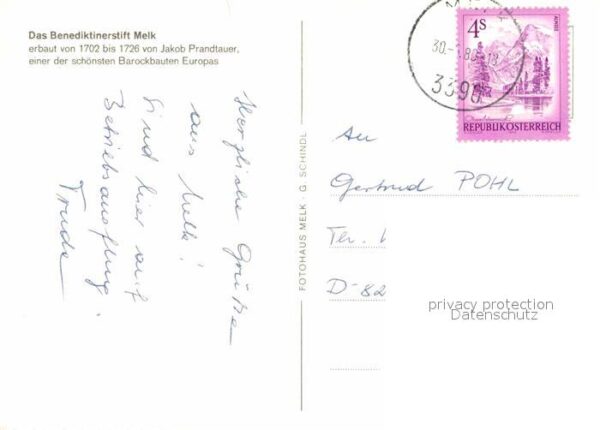 Das Benediktinerstift Melk
erbaut von 1702 bis 1726 von Jakob Prandtauer,
einer der schönsten Barockbauten Europas
Herzliche Grüße
aus Melk!
Sind hier auf
Betriebsausflug.
Trude
FOTOHAUS MELK · G. SCHINDL
30.-1.80-18
3390
4S
ALMSEE
REPUBLIK ÖSTERREICH
An
Gertrud POHL
D-82
privacy protection
Datenschutz